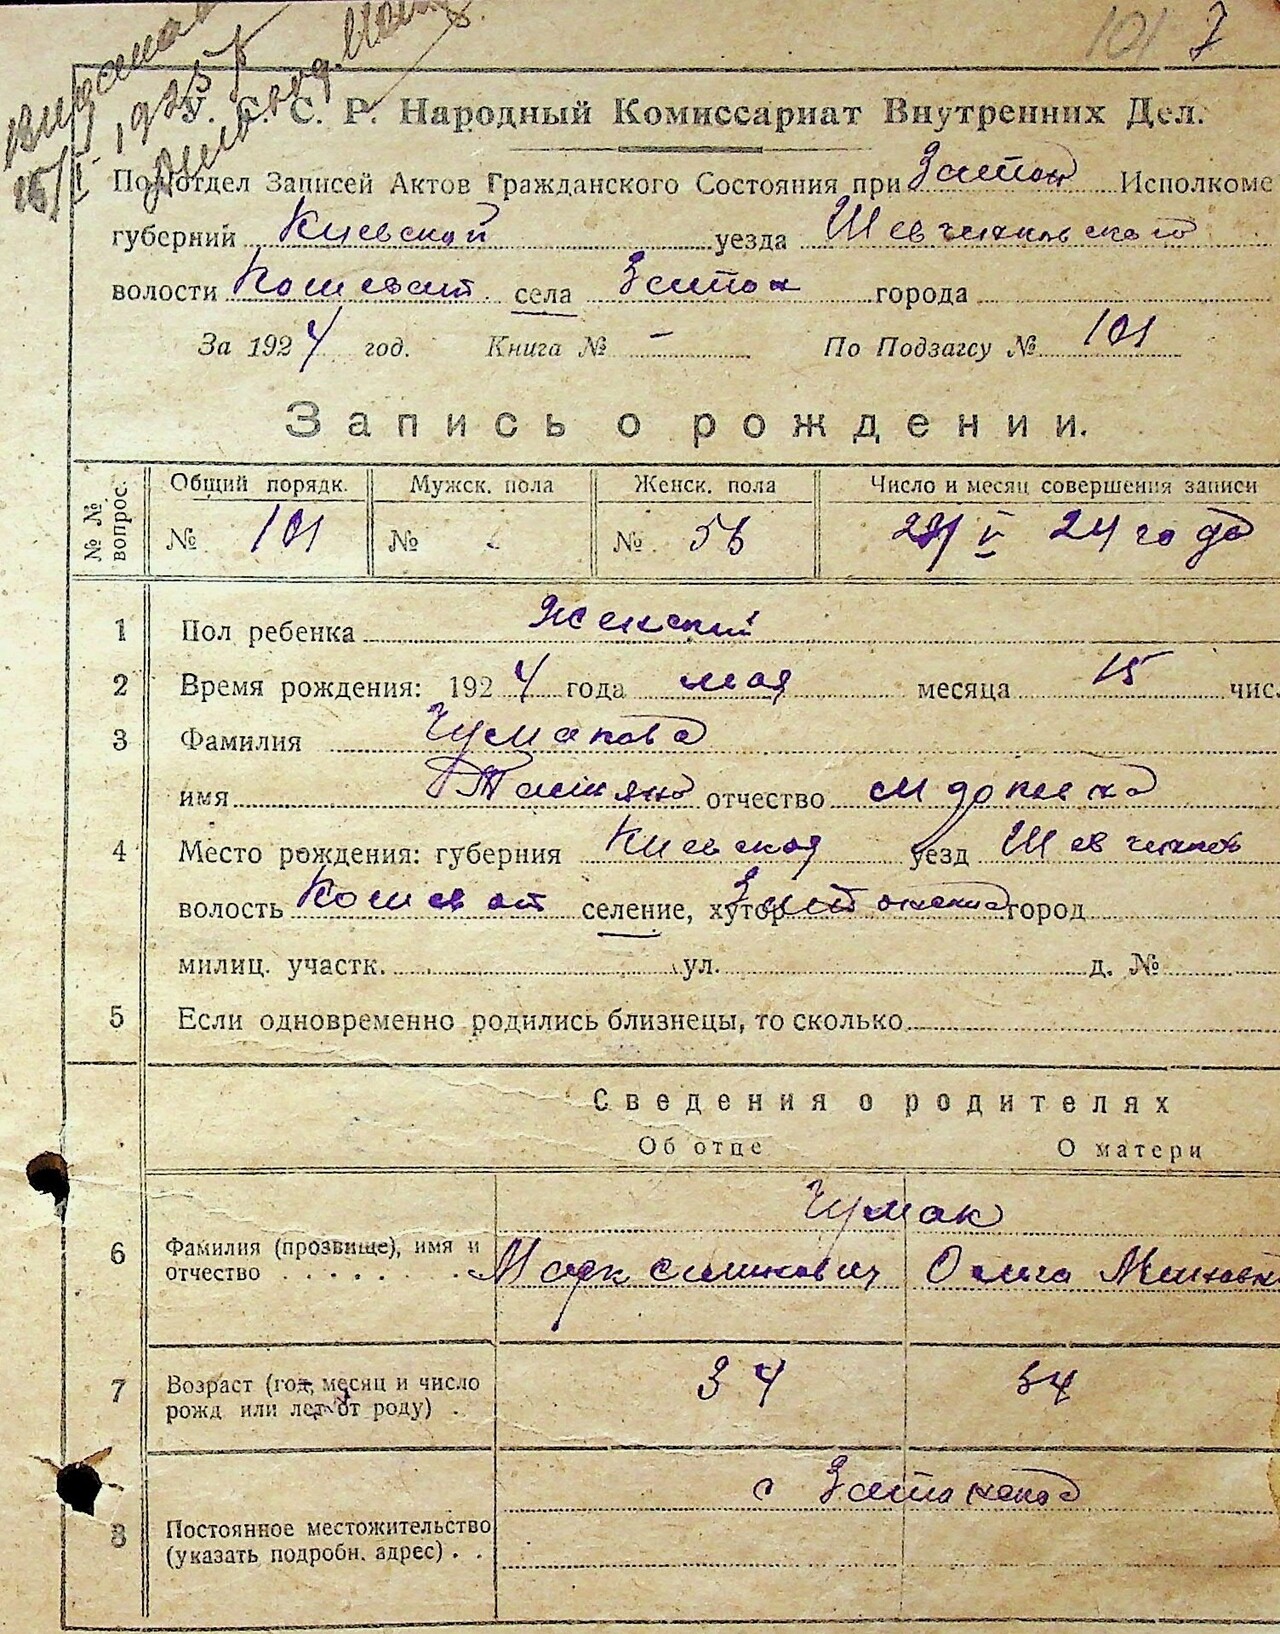 101 7
У. С. С. Р. Народный Комиссариат Внутренних Дел.
Подотдел Записей Актов Гражданского Состояния при Затон Исполкоме
губерний Киевской уезда Шевченковского
волости Кошеват. села Затон города
За 1924 год. Книга № - По Подзагсу № 101
Запись о рождении.
№ № вопрос.
Общий порядк. Мужск. пола Женск. пола Число и месяц совершения записи
№ 101 № № 56 V 24 года
1 Пол ребенка Женский
2 Время рождения: 1924 года мая месяца 15 чис
3 Фамилия Чумакова
имя отчество
4 Место рождения: губерния Киевская уезд Шевченков
волость Кошеват селение, хутор город
милиц. участк. ул. д. №
5 Если одновременно родились близнецы, то сколько
Сведения о родителях
Об отце О матери
Чумак
6 Фамилия (прозвище), имя и
отчество Марк Ольга
7 Возраст (год, месяц и число
рожд или лет от роду) . 34 34
с
8 Постоянное местожительство
(указать подробн. адрес) . .